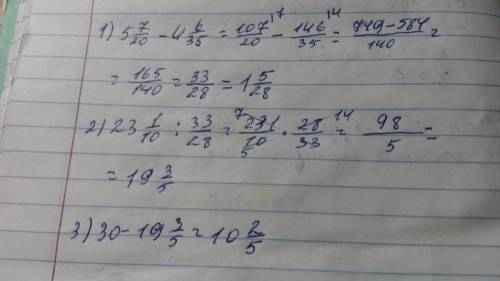 1) 5 7/20 - 4 6/35 = 107/20 ^(7 - 146/35 ^(4 = 749-584/140 =
= 165/140 = 33/28 = 1 5/28
2) 23 1/10 : 33/28 = 7 231/10 5 · 28/33 14 = 98/5 =
= 19 3/5
3) 30 - 19 3/5 = 10 2/5